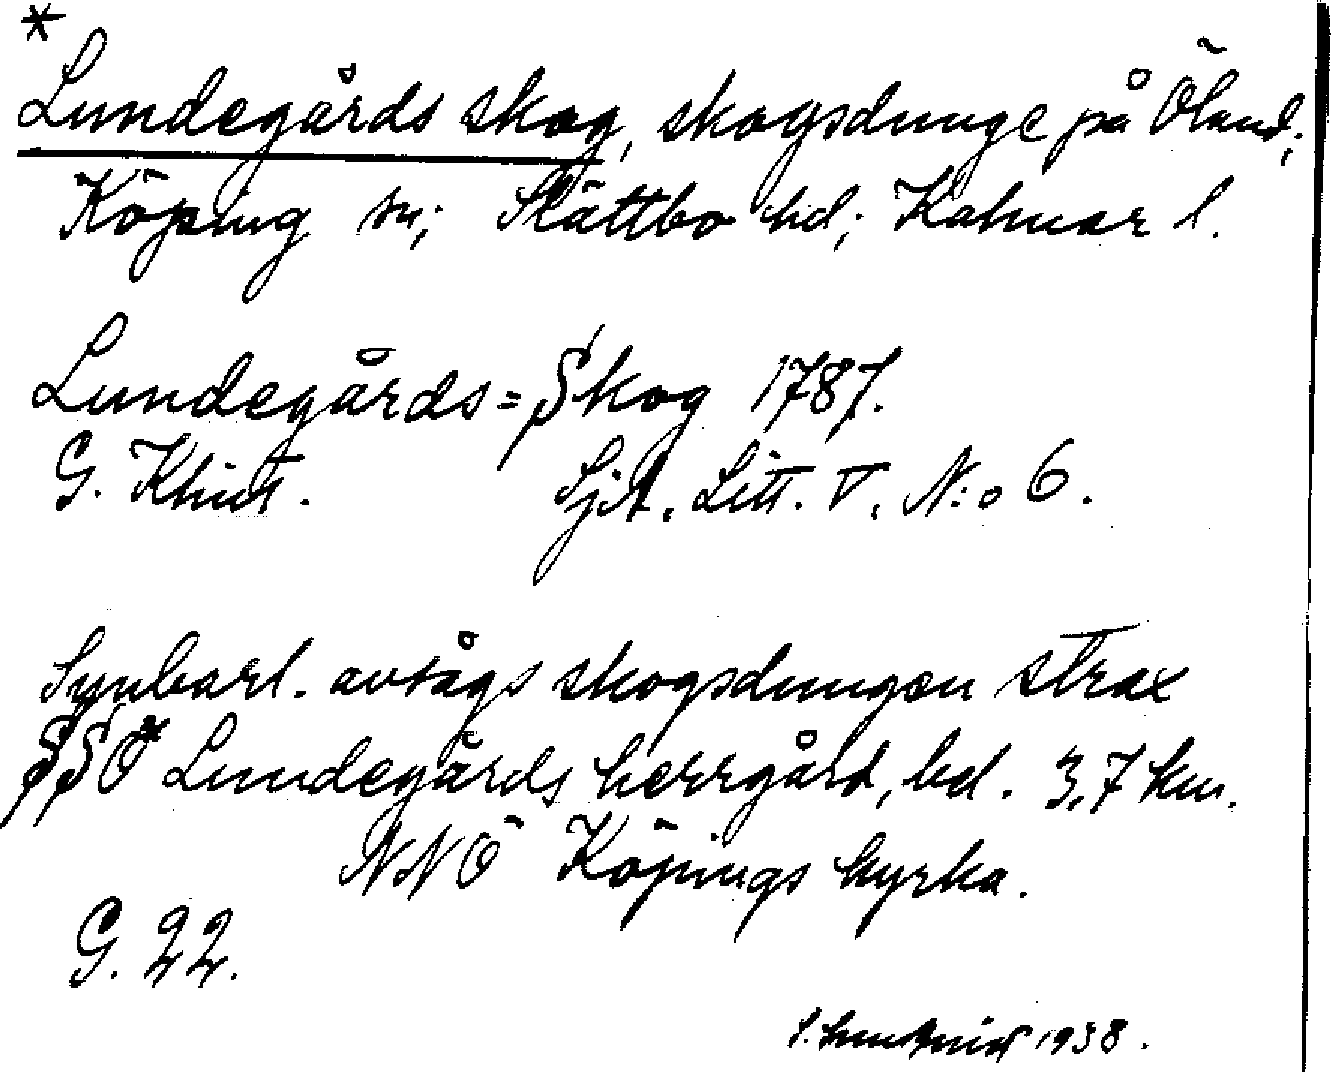 *
Lundegårds skog, skogsdunge på Öland;
Köping sn; Slättbo hd; Kalmar l.
Lundegårds=Skog 1787.
G. Klint. SjA. Litt. V. N:o 6.
Synbarl. avsågs skogsdungen strax
SSÖ Lundegårds herrgård, bel. 3,7 km.
NNÖ Köpings kyrka.
G. 22.
1938.